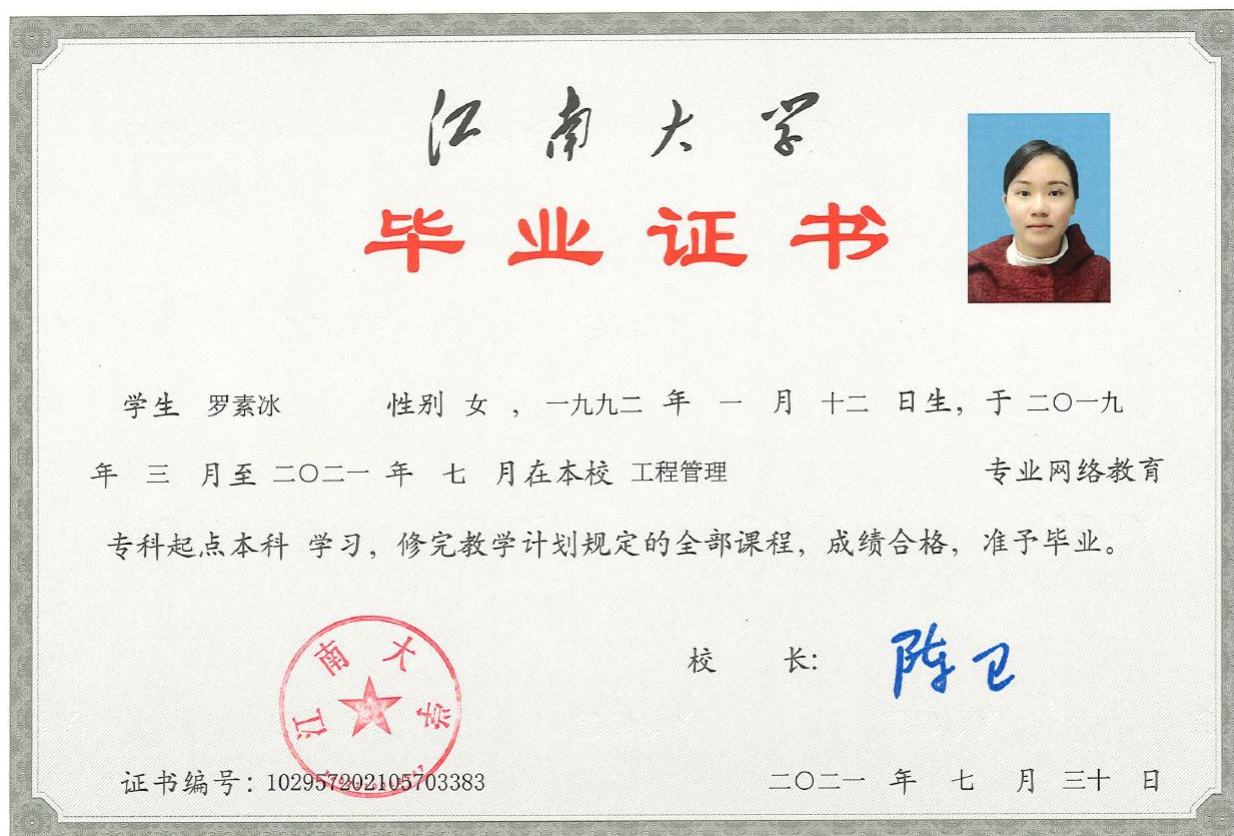 江南大学
毕业证书
学生 罗素冰 性别 女 ,一九九二 年 一 月 十二 日生,于 二〇一九
年 三 月至 二〇二一 年 七 月在本校 工程管理 专业网络教育
专科起点本科 学习,修完教学计划规定的全部课程,成绩合格,准予毕业。
江南大学
校 长: 陈卫
证书编号:102957202105703383 二〇二一 年 七 月 三十 日